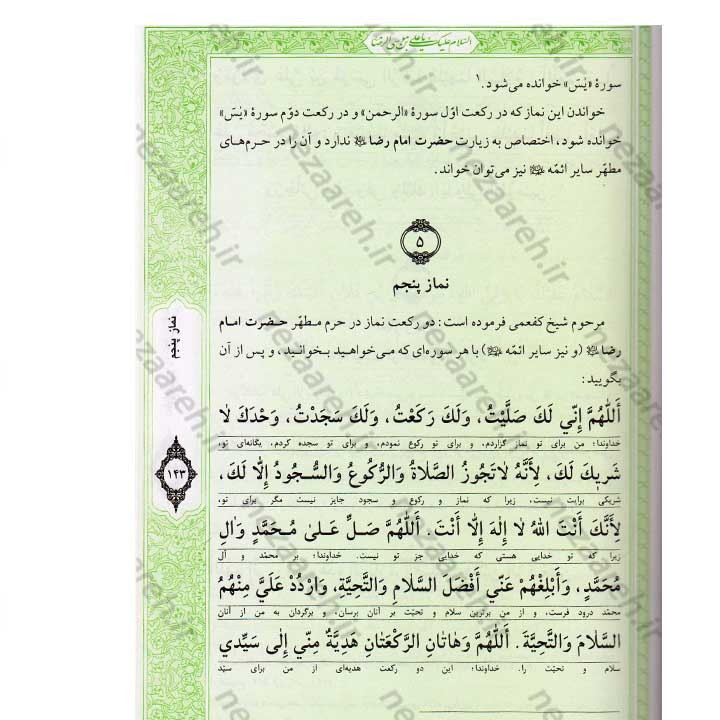 السّلام علیک یا علی بن موسی الرضا
سورهٔ «یٰسٓ» خوانده می‌شود.۱
خواندن این نماز که در رکعت اوّل سورهٔ «الرحمن» و در رکعت دوّم سورهٔ «یٰسٓ»
خوانده شود، اختصاص به زیارت حضرت امام رضا ندارد و آن را در حرم‌های
مطهّر سایر ائمّه نیز می‌توان خواند.
۵
نماز پنجم
مرحوم شیخ کفعمی فرموده است: دو رکعت نماز در حرم مطهّر حضرت امام
رضا (و نیز سایر ائمّه) با هر سوره‌ای که می‌خواهید بخوانید، و پس از آن
بگویید:
أَللّٰهُمَّ إِنّي لَكَ صَلَّيْتُ، وَلَكَ رَكَعْتُ، وَلَكَ سَجَدْتُ، وَحْدَكَ لاٰ
خداوندا؛ من برای تو نماز گزاردم، و برای تو رکوع نمودم، و برای تو سجده کردم، یگانه‌ای تو،
شَريكَ لَكَ، لِأَنَّهُ لاٰتَجُوزُ الصَّلاٰةُ وَالرُّكُوعُ وَالسُّجُودُ إِلّاٰ لَكَ،
شریکی برایت نیست، زیرا که نماز و رکوع و سجود جایز نیست مگر برای تو،
لِأَنَّكَ أَنْتَ اللهُ لاٰ إِلٰهَ إِلّاٰ أَنْتَ. أَللّٰهُمَّ صَلِّ عَلىٰ مُحَمَّدٍ وَاٰلِ
زیرا که تو خدایی هستی که خدایی جز تو نیست. خداوندا؛ بر محمّد و آل
مُحَمَّدٍ، وَأَبْلِغْهُمْ عَنّي أَفْضَلَ السَّلاٰمِ وَالتَّحِيَّةِ، وَارْدُدْ عَلَيَّ مِنْهُمُ
محمّد درود فرست، و از من برترین سلام و تحیّت بر آنان برسان، و برگردان به من از آنان
السَّلاٰمَ وَالتَّحِيَّةَ. أَللّٰهُمَّ وَهٰاتٰانِ الرَّكْعَتٰانِ هَدِيَّةٌ مِنّي إِلٰى سَيِّدي
سلام و تحیّت را. خداوندا؛ این دو رکعت هدیه‌ای از من برای سیّد
نماز پنجم
۱۴۳
nezaareh.ir